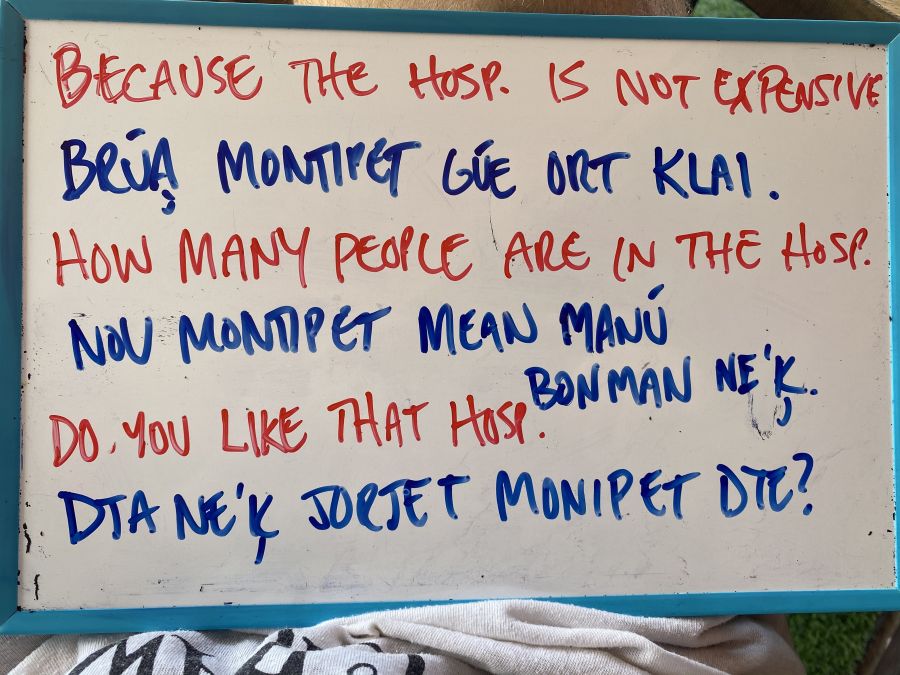 BECAUSE THE HOSP. IS NOT EXPENSIVE
BRÚA̧ MONTIPET GÚE ORT KLAI.
HOW MANY PEOPLE ARE IN THE HOSP.
NOU MONTIPET MEAN MANÚ
BONMAN NE'Ķ.
DO YOU LIKE THAT HOSP.
DTA NE'Ķ JORJET MONIPET DTE?